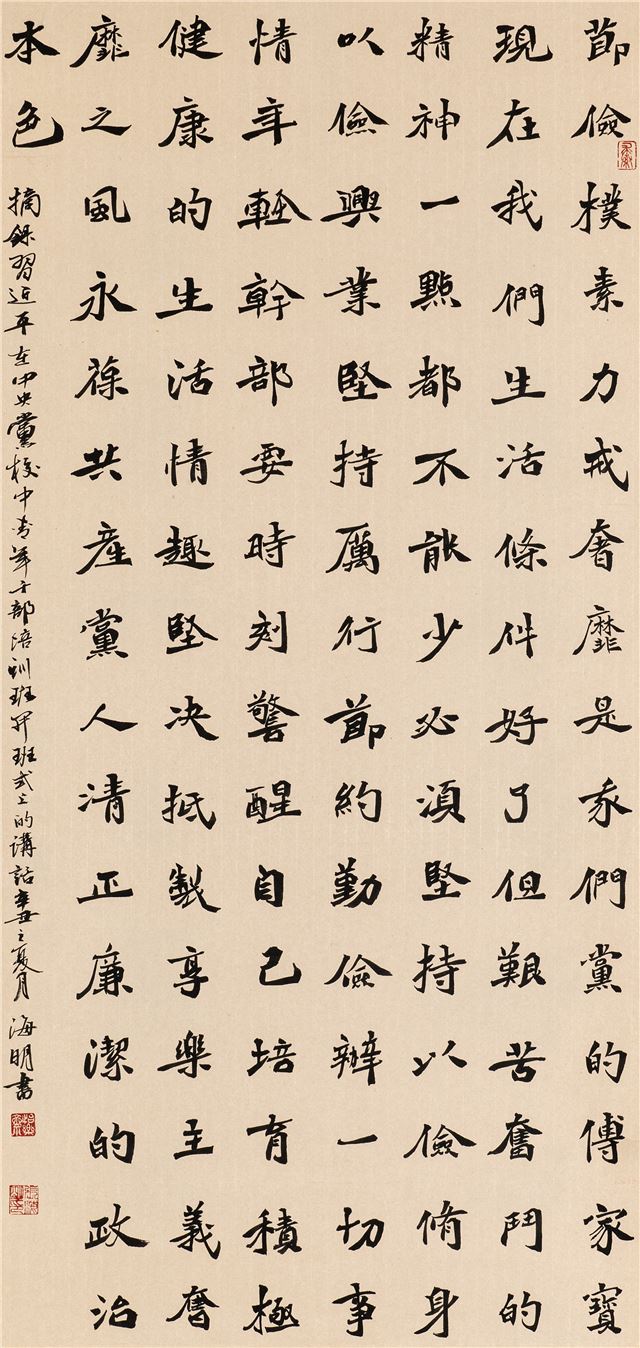 節儉樸素力戒奢靡是我們黨的傳家寶
現在我們生活條件好了但艱苦奮鬥的
精神一點都不能少必須堅持以儉脩身
以儉興業堅持厲行節約勤儉辦一切事
情年輕幹部要時刻警醒自己培育積極
健康的生活情趣堅決抵製享樂主義奢
靡之風永葆共產黨人清正廉潔的政治
本色
摘錄習近平在中央黨校中青年干部培訓班開班式上的講話辛丑之夏月海明書